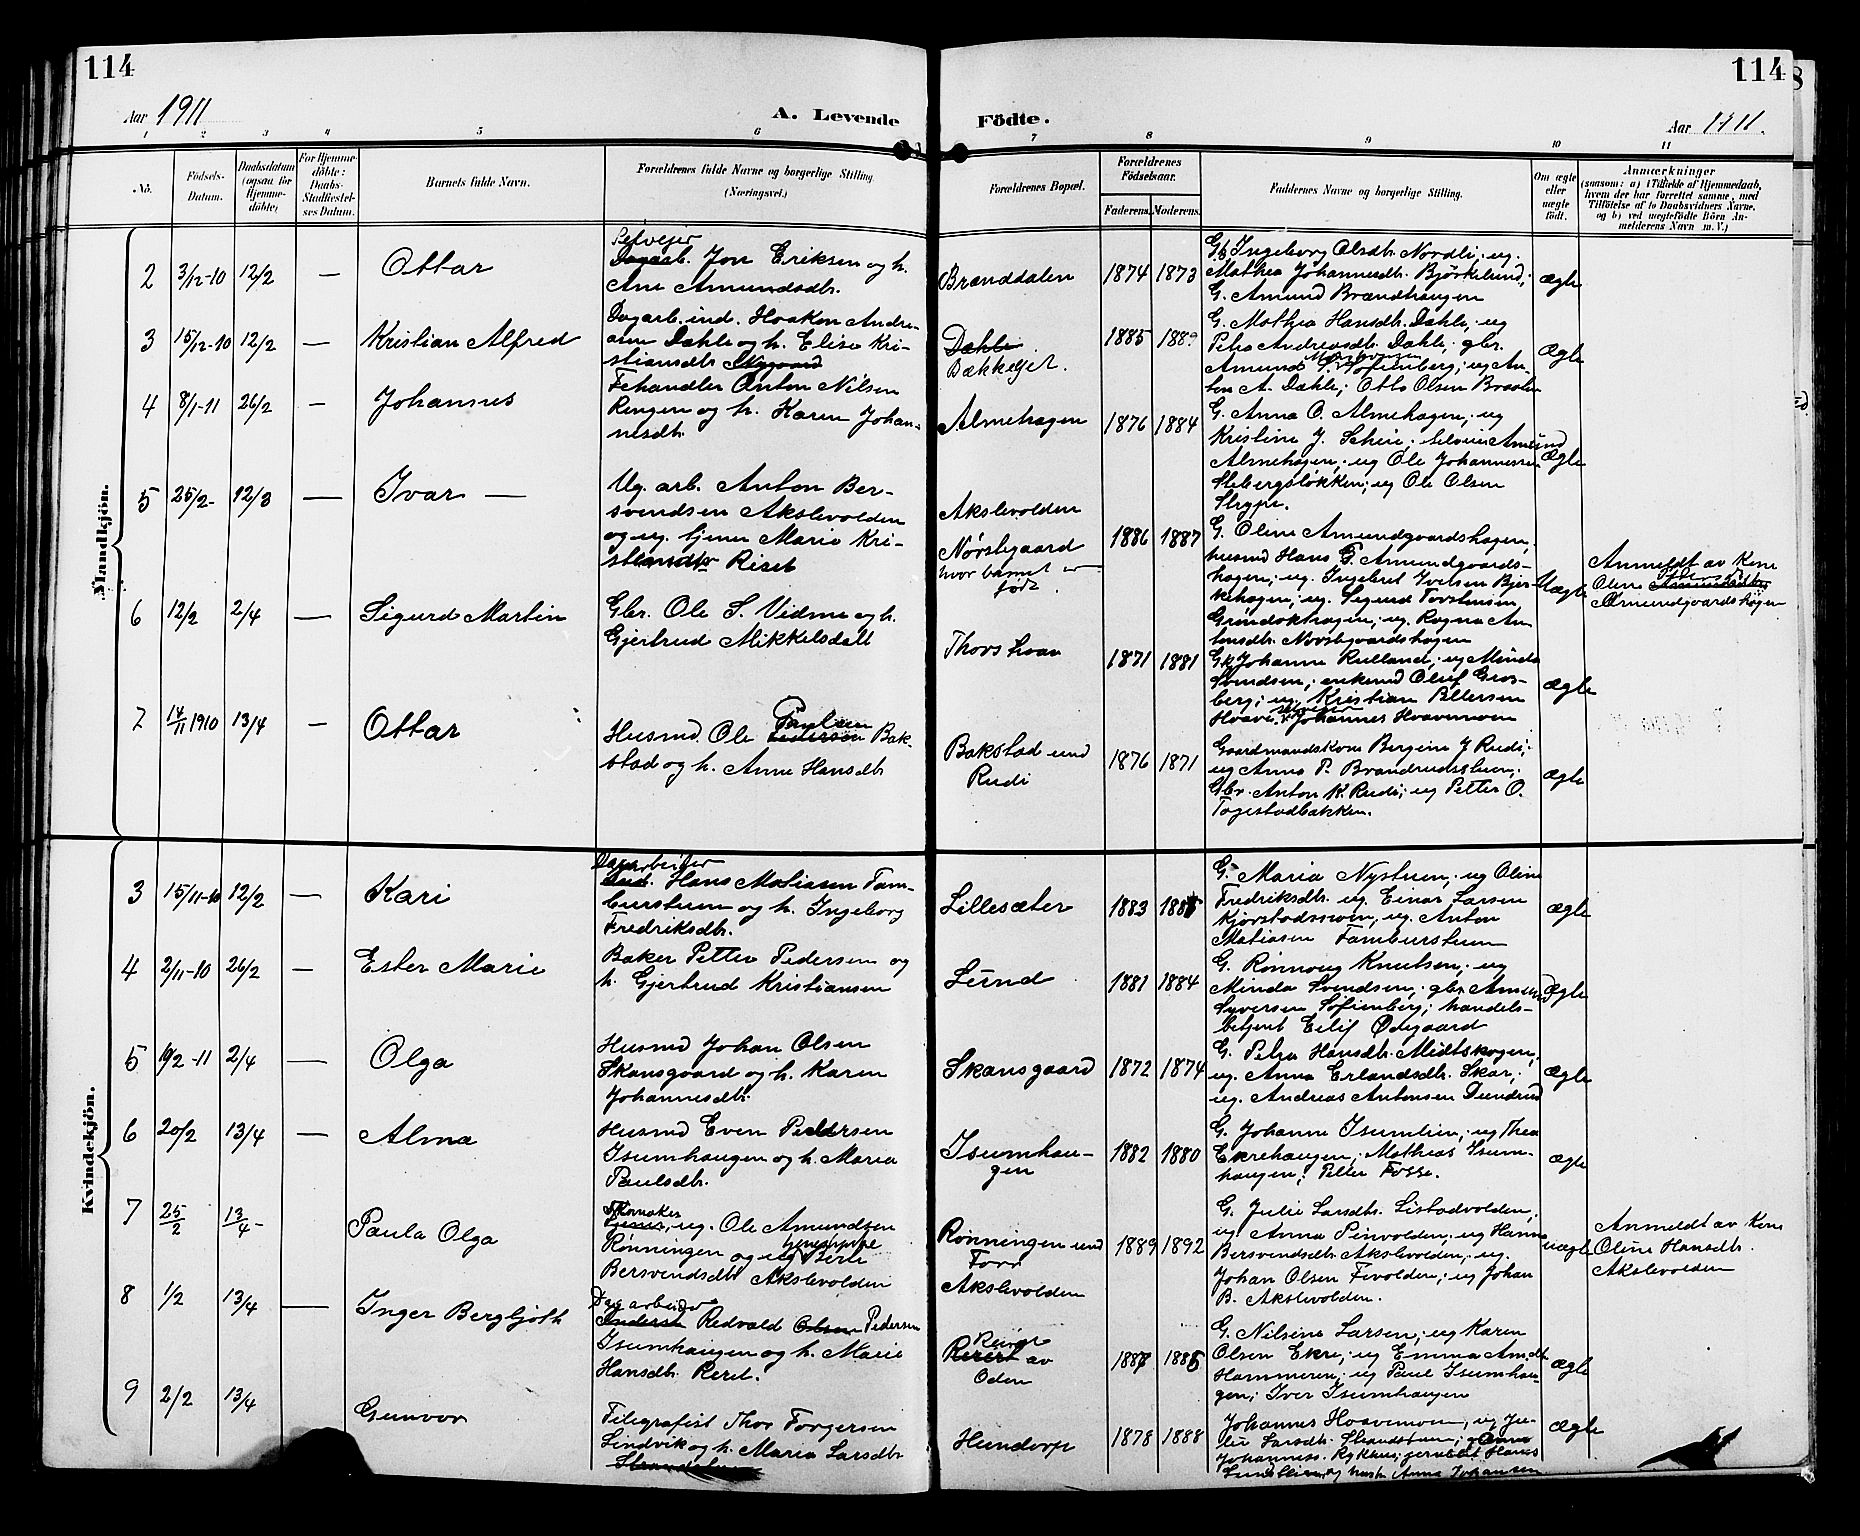 114
114
Aar 1911
A. Levende
Födte.
Aar 1911.
1 2 3 4 5 6 7 8 9 10 11
No.
Födsels-
Datum.
Daabsdatum
(ogsaa for
Hjemme-
döbte)
For Hjemme-
döbte:
Daabs-
Stadfæstel-
ses Datum.
Barnets fulde Navn.
Forældrenes fulde Navne og borgerlige Stilling
(Næringsvei.)
Forældrenes Bopæl.
Forældrenes
Födselsaar.
Faderens. Moderens.
Faddernes Navne og borgerlige Stilling.
Om ægte
eller
uægte
født.
Anmærkninger
(saasom: a) i Tilfælde af Hjemmedaab,
hvem der har forrettet samme, med
Tilføielse af to Daabsvidners Navne,
og b) ved uegtefødte Börn An-
melderens Navn m. V.)
Mandkjön.
2 3/12-10 12/2 — Ottar
Selveier
Dagarb. Jon Eriksen og h.
Ane Amundsdtr.
Brænddalen 1874 1873
G. Ingeborg Olsdtr. Nordli; ug.
Mathea Johannesdtr. Björkelund;
G. Amund Brændhaugen
Ægte
3 15/12-10 12/2 — Kristian Alfred
Dagarb. ind. Haakon Andre-
asen Dæhle og h. Elise Kri-
stiansdtr. Nygaard
Dæhle
Bækkejet.
1885 1889
G. Mathea Hansdtr. Dæhle; ug
Petra Andreasdtr. Dæhle; gbr.
Amund S. Sofienberg; ug An-
ton A. Dæhle; Otto Olsen
Ægte
4 8/1-11 26/2 — Johannes
Fehandler Anton Nilsen
Ringen og h. Karen Johan-
nesdtr.
Almehagen 1876 1884
G. Anna O. Almehagen; ug
Kristine J. Scheie; Amund
Almehagen; ug Ole Johannessen
Stebergsløkken; ug Ole Olsen
Strype.
Ægte
5 25/2- 12/3 — Ivar —
Ug. arb. Anton Ber-
svendsen Akslevolden
og ug. tjener Marie Kri-
stiansdtr Riset
Akslevolden
Nørstegaard
hvor barnet er
født.
1886 1887
G. Oline Amundgaardshagen,
husmd Hans G. Amundgaards-
hagen; ug. Ingebret Iversen Bjer-
kehagen; ug. Sigurd Torstensen
Grindstuhagen; ug. Ragna An-
tonsdtr. Nørstegaardshagen
Uægte
Anmeldt av Kone
Oline
Amundgaardshagen
6 12/2 2/4 — Sigurd Martin
Gbr. Ole S. Vidme og h.
Gjertrud Mikkelsdatt
Thorshaav 1871 1881
Gk Johanne Rulland; ug Minda
Svendsen; enkemd Oluf Gros-
berg; ug. Kristian Pettersen
Hoave; Johannes Hoavemoen
ægte
7 14/11 1910 13/4 — Ottar
Husmd. Ole Paulsen
Pedersen Bak-
stad og h. Anne Hansdtr
Bakstad und
Rudi
1876 1871
Gaardmandskone Bergine J Rudi;
ug Anna P. Brandrudsstuen;
Gbr. Anton K. Rudi; ug Petter O.
Togestadbakken.
ægte
Kvindekjön.
3 15/11-10 12/2 — Kari
Dagarbeider
Ind. Hans Matiasen Tam-
burstuen og h. Ingeborg
Fredriksdtr.
Lillesæter 1883
G. Maria Nystuen; ug Oline
Fredriksdtr. ug. Einar Larsen
Kjørstadsmoen, ug. Anton
Matiasen Tamburstuen
ægte
4 2/11-10 26/2 — Ester Marie
Baker Petter Pedersen og
h. Gjertrud Kristiansen
Lund 1881 1884
G. Rønnoug Knutsen; ug
Minda Svendsen; gbr Amund
Syversen Sofienberg; handels-
betjent Eilif Ødegaard
Ægte
5 19/2-11 2/4 — Olga
Husmd Johan Olsen
Skansgaard og h. Karen
Johannesdtr.
Skansgaard 1872 1874
G. Petra Hansdtr. Midtskogen;
ug. Anna Erlandsdtr. Skar;
ug. Andreas Antonsen Dundrud
ægte
6 20/2 13/4 — Alma
Husmd Even Pedersen
Isumhaugen og h. Maria
Paulsdtr.
Isumhau-
gen
1882 1880
G. Johanne Isumlien; ug Thea
Ekrehaugen; Mathias Isum-
haugen; Petter Fosse.
ægte
7 25/2 13/4 - Paula Olga
Skomaker
ug. Ole Amundsen
Rønningen og ug Berte
Bersvendsdtr Akslevolden
Rønningen und
Forr
Akslevolden
1889 1892
G. Julie Larsdtr. Listadvolden;
ug Anna Pinvolden; ug Hanna
Bersvendsdtr Akslevolden, ug.
Johan Olsen Fivolden; ug Johan
B. Akslevolden.
uægte
Anmeldt av Kone
Oline Hansdtr.
Akslevolden
8 1/2 13/4 — Inger Bergljoth
Dagarbeider
Redvald Olsen Pedersen
Isumhaugen og h. Marie
Hansdtr. Reret.
av
Oden
1885
G. Nilsine Larsen; ug Karen
Olsen Ekre; ug Emma Amdtr
Hammeren; ug Paul Isumhau-
gen; Iver Isumhaugen
ægte
9 2/2 13/4 Gunvor
Telegrafist Thor Torgersen
Lindvik og h. Maria Larsdtr
Hundorp 1878 1888
Johannes Hoavemoen, ug Ju-
lie Larsdtr. Strandstuen;
Anna Johansen
ægte